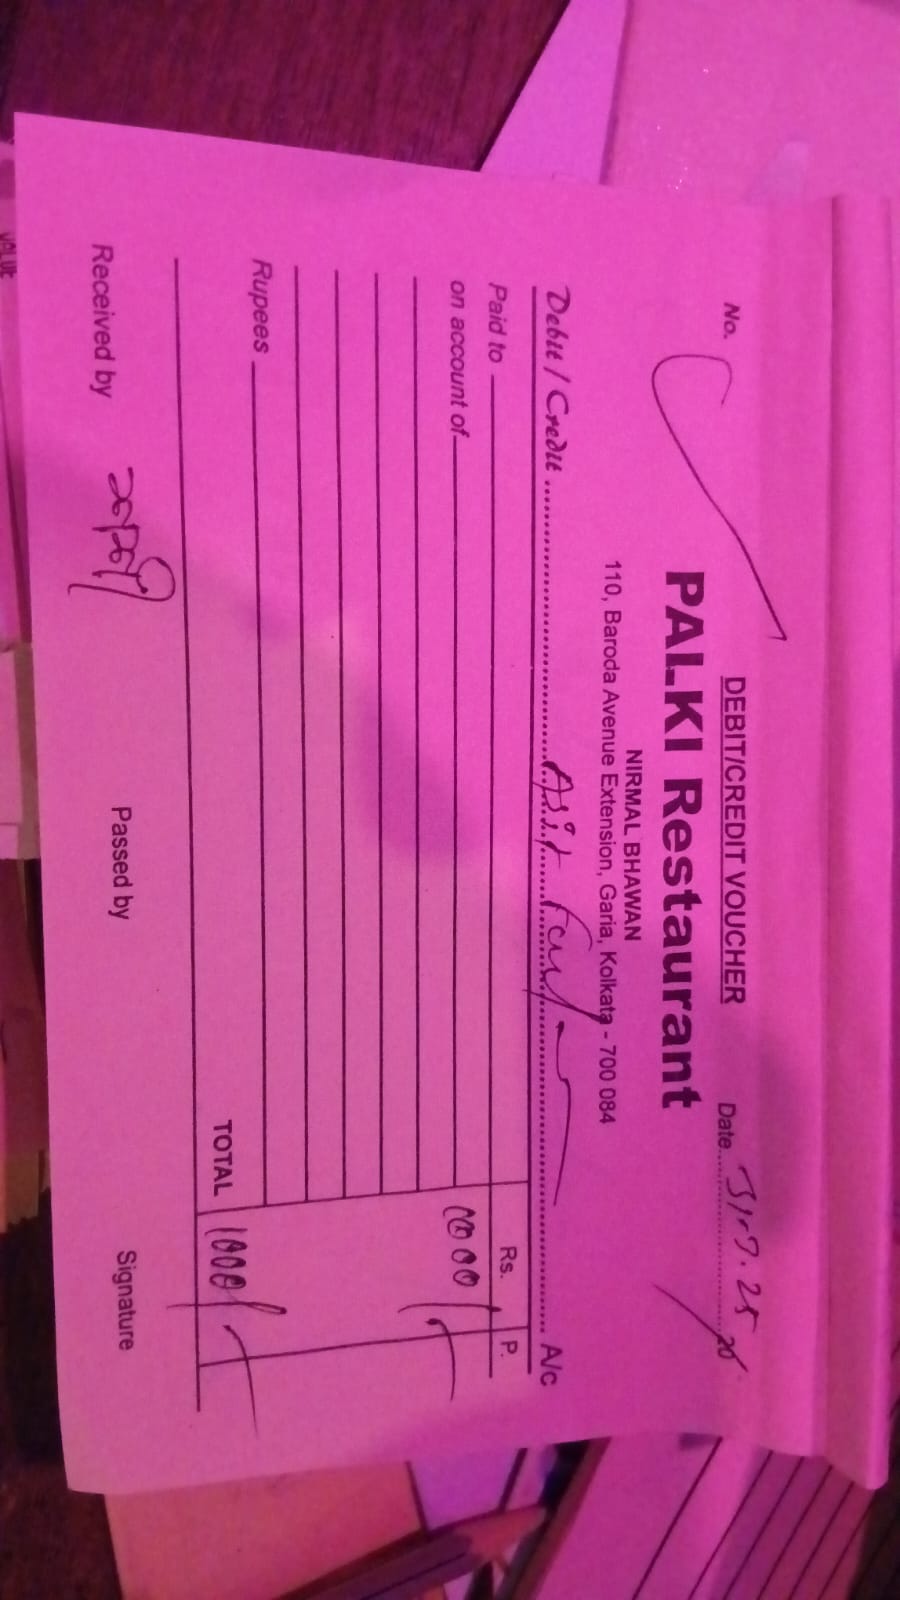 DEBIT/CREDIT VOUCHER
No. Date 31.7.25
PALKI Restaurant
NIRMAL BHAWAN
110, Baroda Avenue Extension, Garia, Kolkata - 700 084
Debit / Credit Asit A/c
Paid to Rs. P.
on account of 1000/-
Rupees
TOTAL 1000/-
Received by Passed by Signature
VALUE